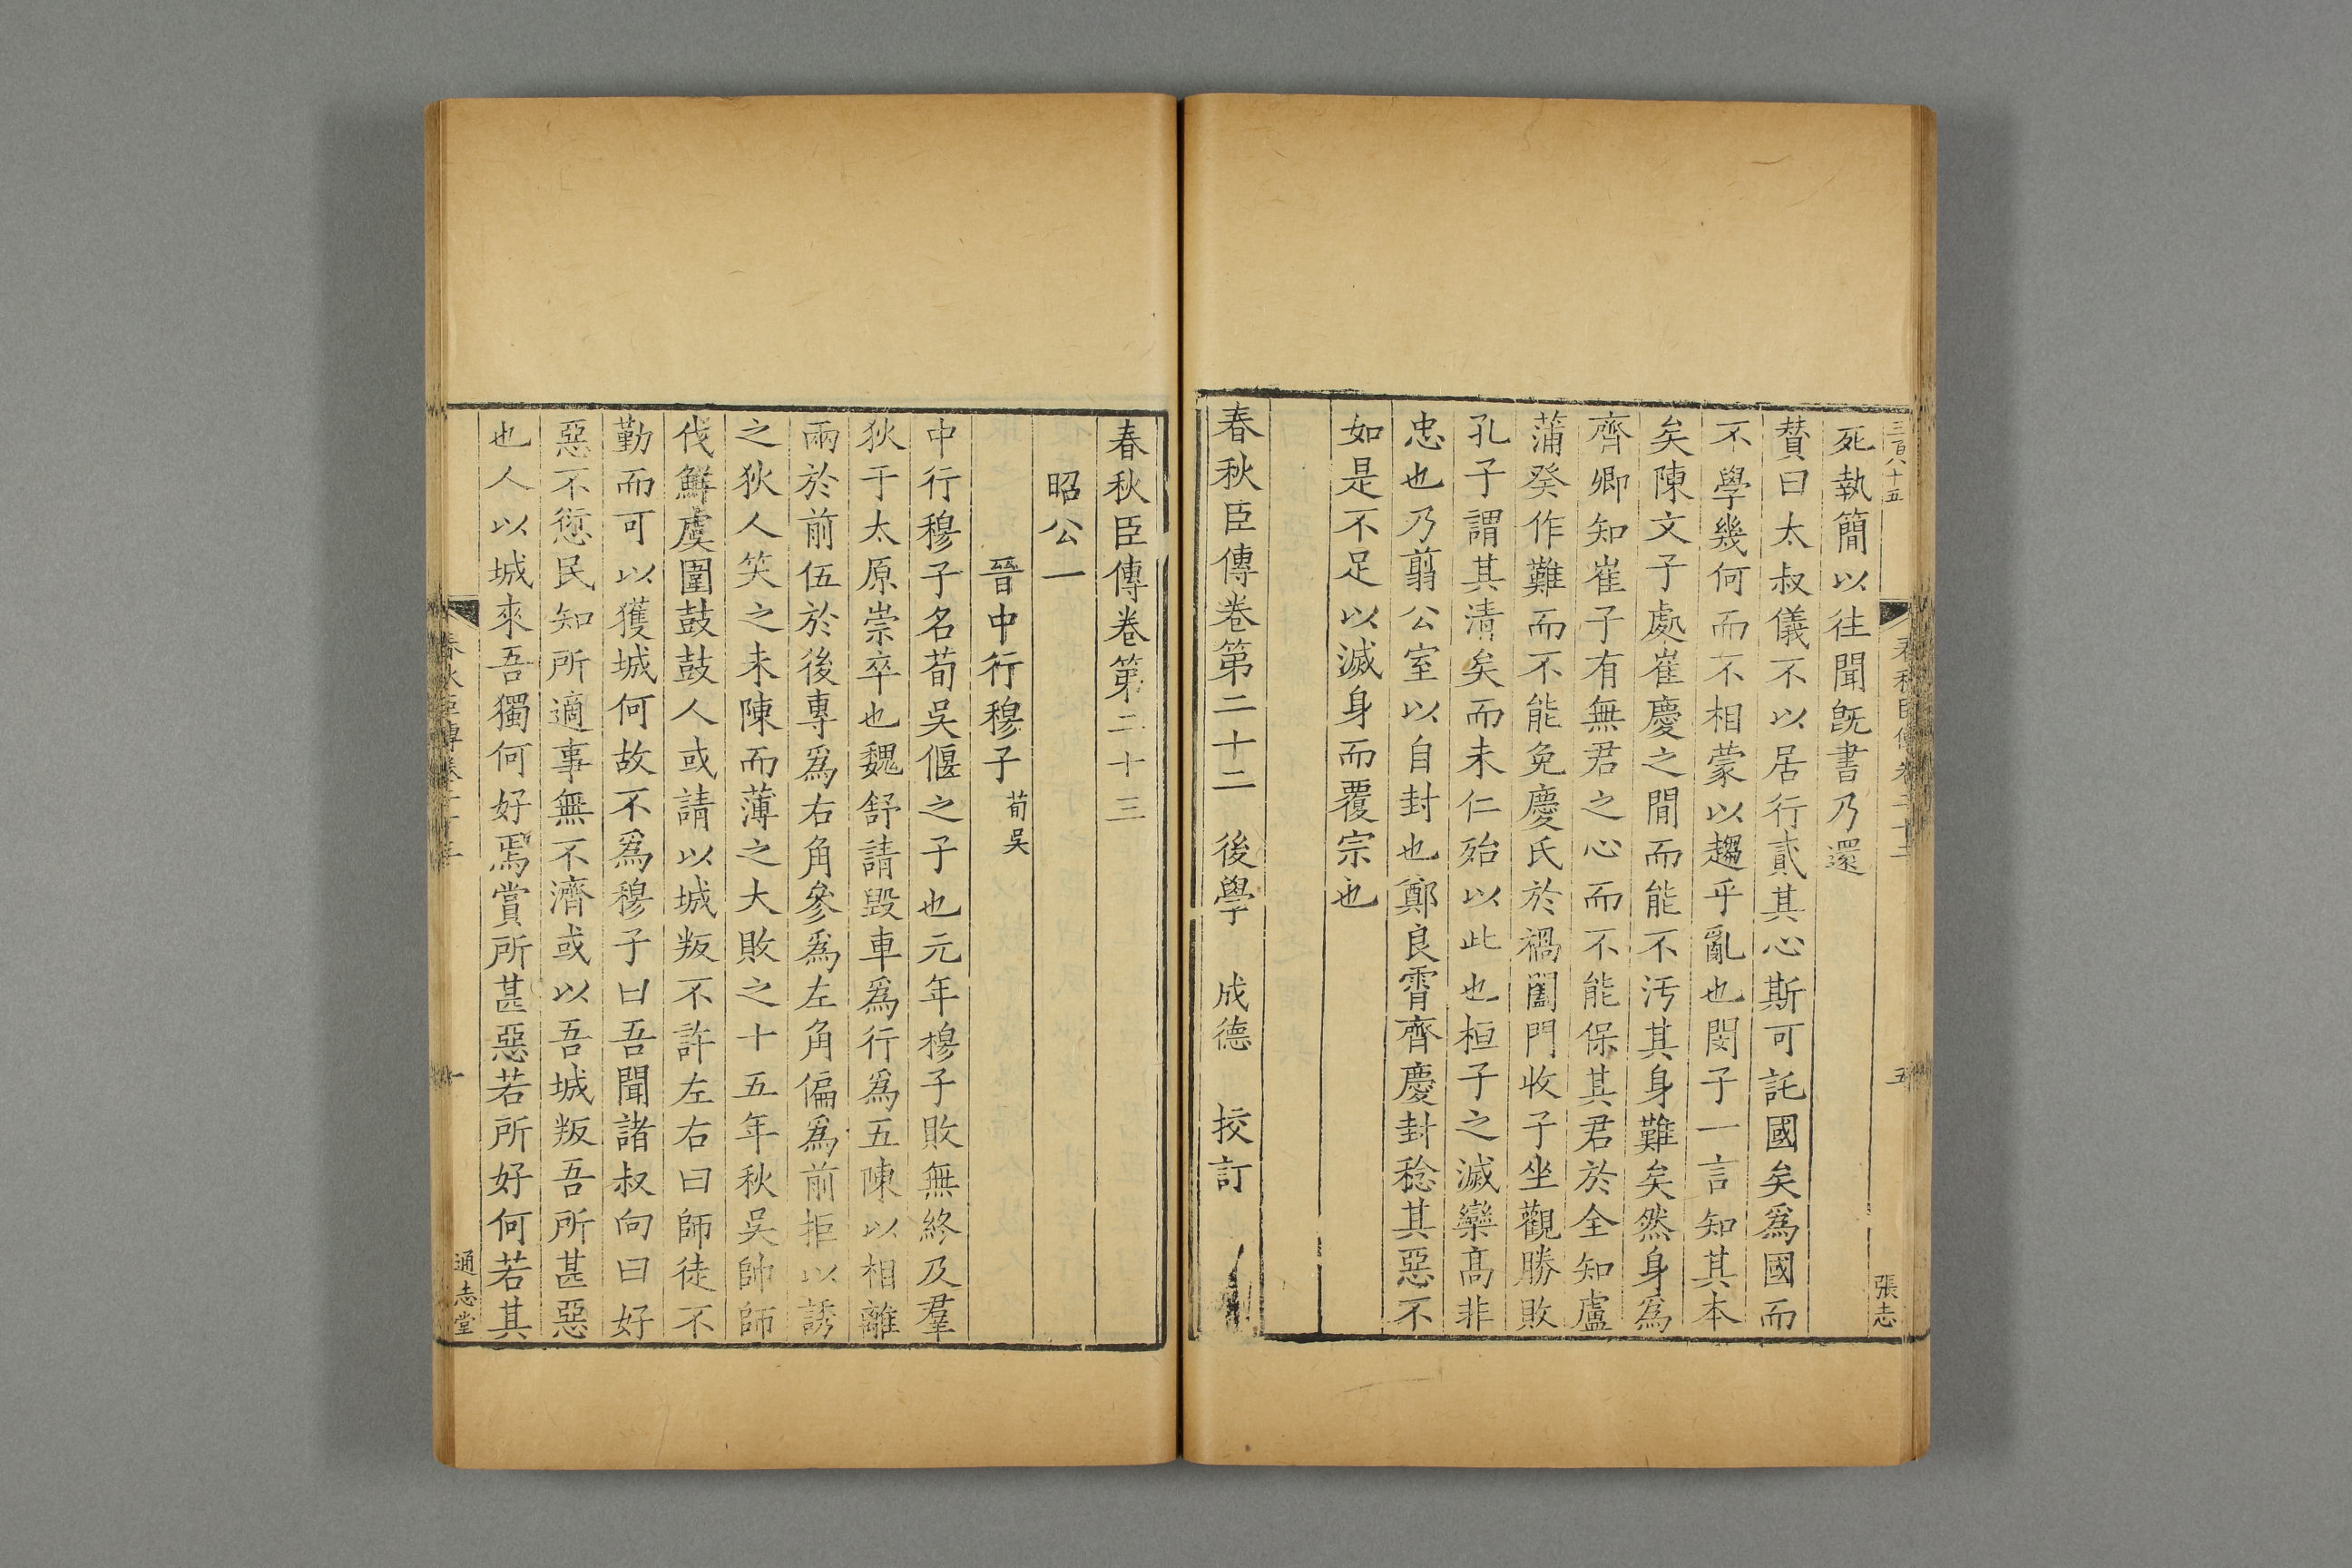 三百八十五
五
張志
死執簡以往聞旣書乃還
賛曰太叔儀不以居行貳其心斯可託國矣爲國而
不學幾何而不相蒙以趨乎亂也閔子一言知其本
矣陳文子處崔慶之閒而能不汚其身難矣然身爲
齊卿知崔子有無君之心而不能保其君於全知盧
蒲癸作難而不能免慶氏於禍闔門收子坐觀勝敗
孔子謂其淸矣而未仁殆以此也桓子之滅欒髙非
忠也乃翦公室以自封也鄭良霄齊慶封稔其惡不
如是不足以滅身而覆宗也
春秋臣傳卷第二十二 後學 成德 挍訂
春秋臣傳卷第二十三
昭公一
晉中行穆子 荀吳
中行穆子名荀吳偃之子也元年穆子敗無終及羣
狄于太原崇卒也魏舒請毀車爲行爲五陳以相離
兩於前伍於後專爲右角參爲左角偏爲前拒以誘
之狄人笑之未陳而薄之大敗之十五年秋吳帥師
伐鮮虞圍鼓鼓人或請以城叛不許左右曰師徒不
勤而可以獲城何故不爲穆子曰吾聞諸叔向曰好
惡不愆民知所適事無不濟或以吾城叛吾所甚惡
也人以城來吾獨何好焉賞所甚惡若所好何若其
春秋臣傳卷二十三
一
通志堂